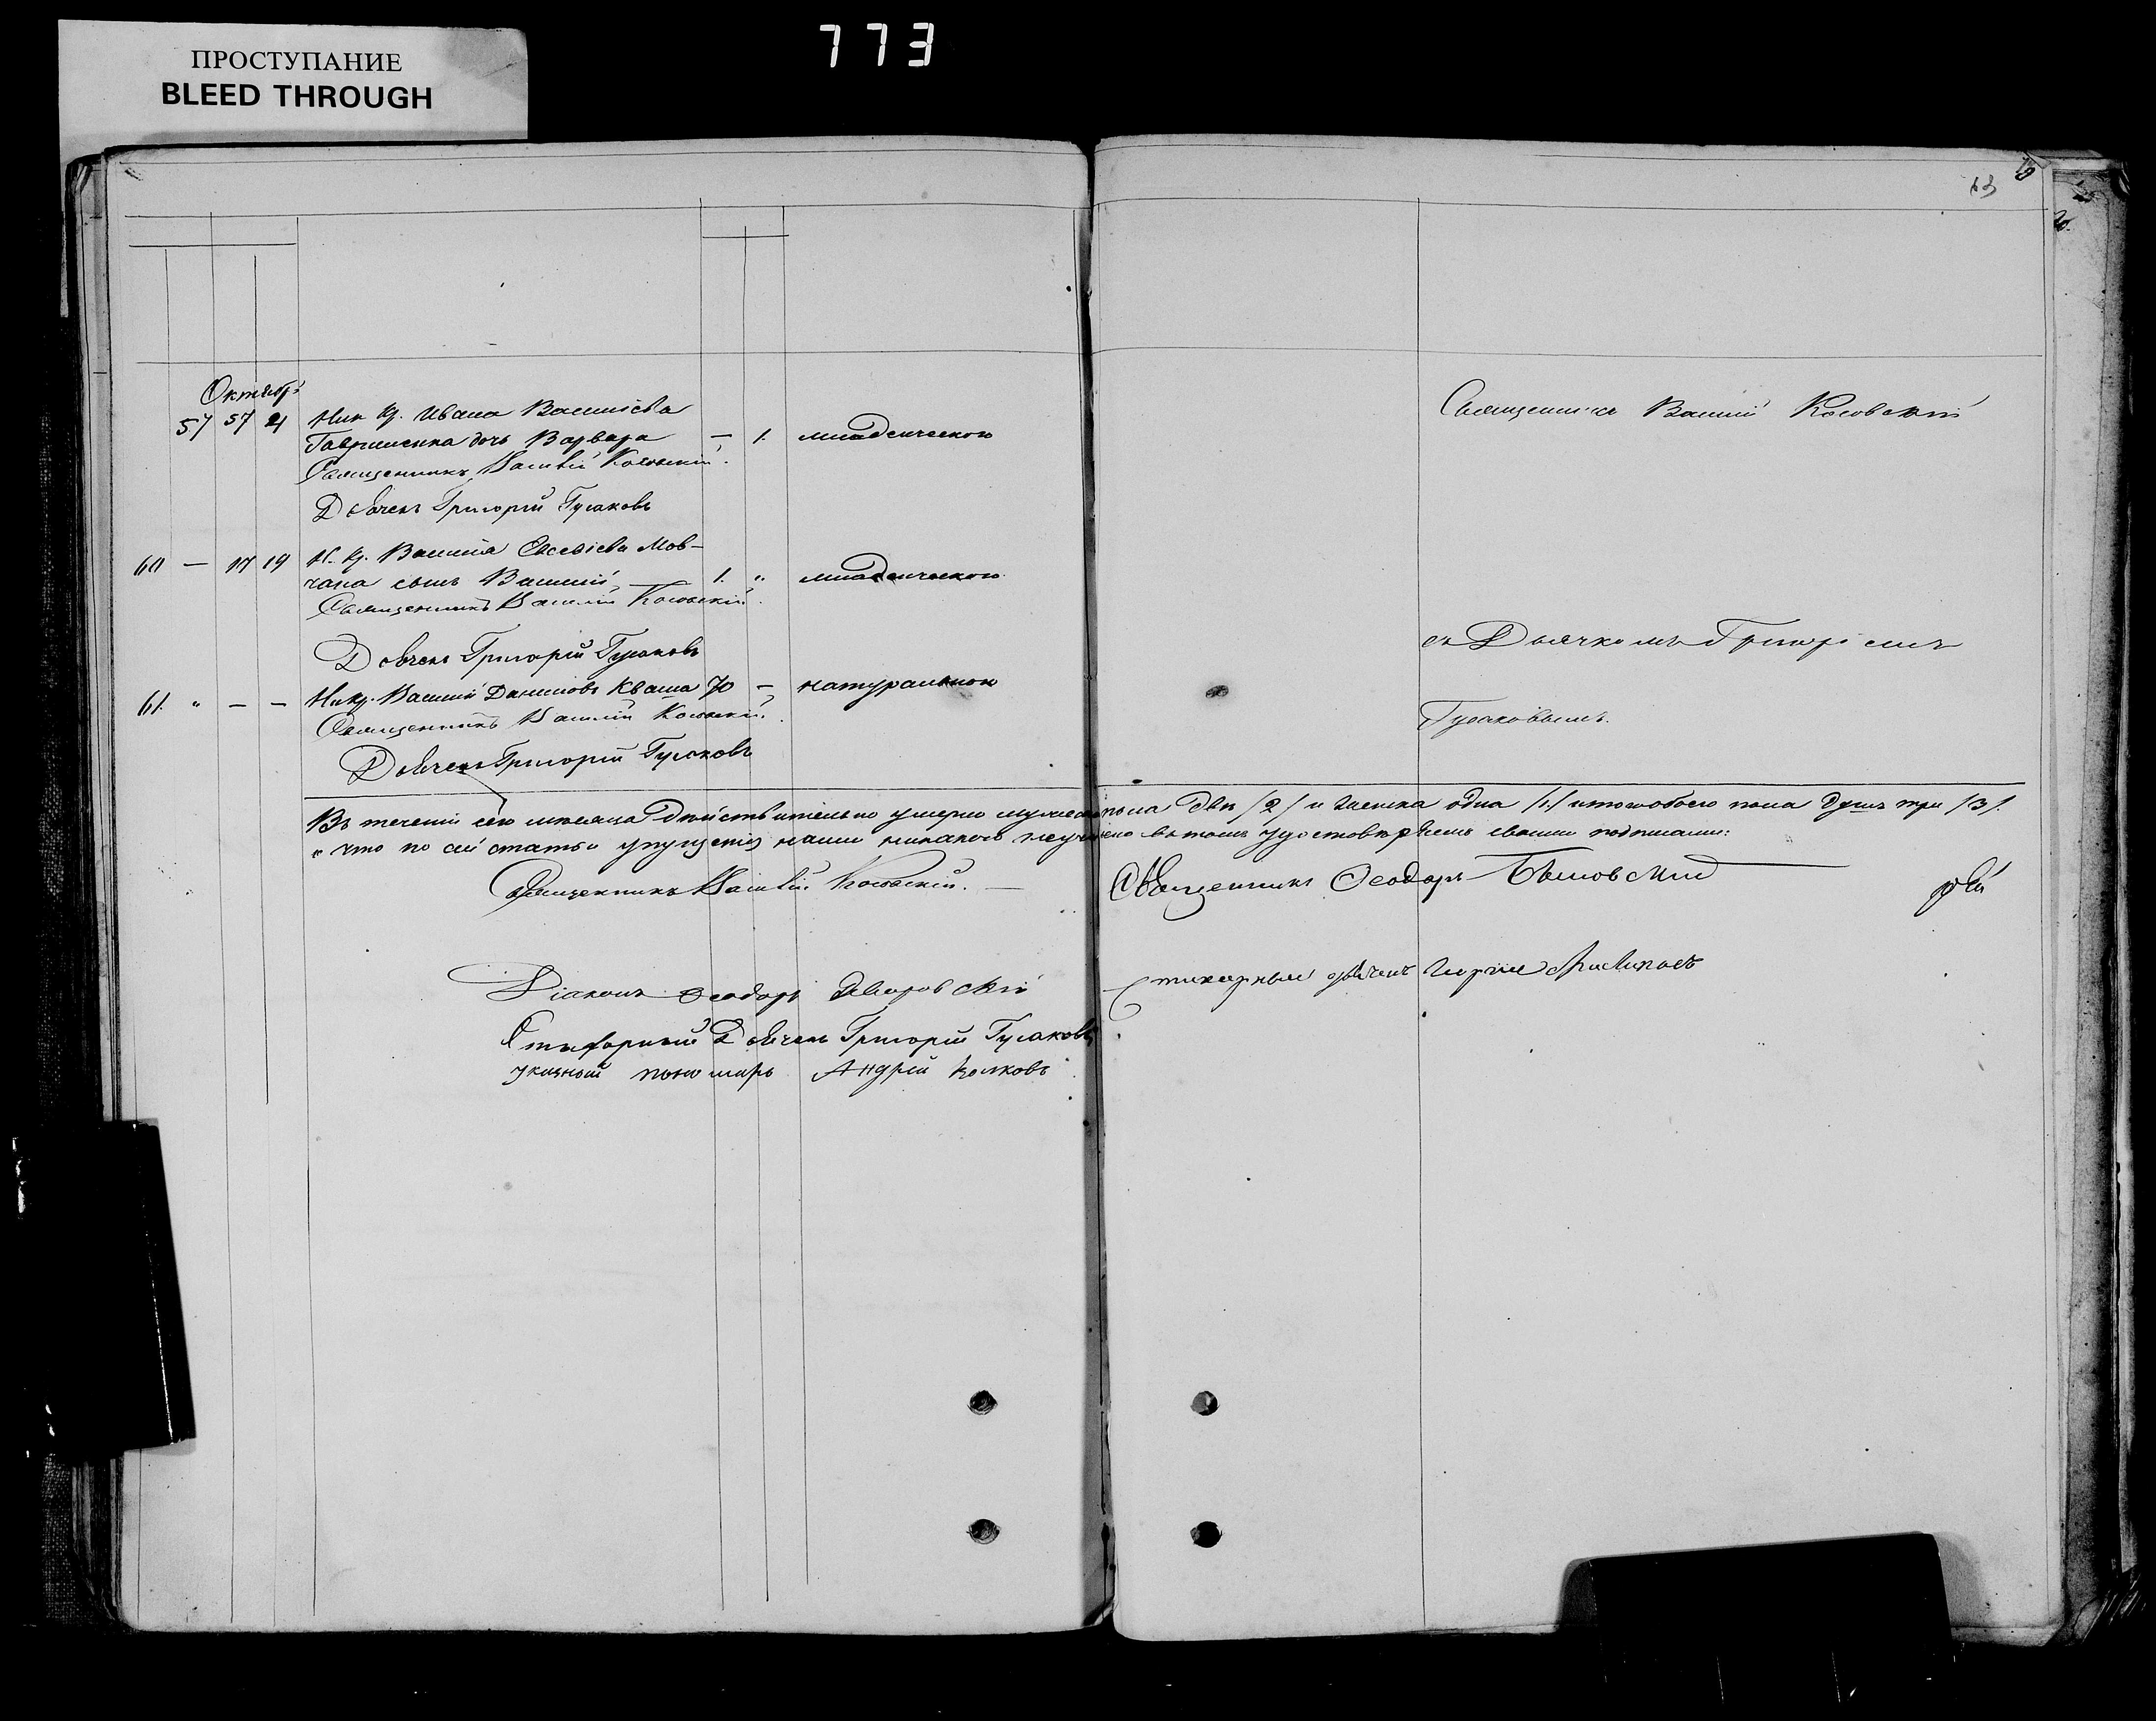 773
ПРОСТУПАНИЕ
BLEED THROUGH
63
Октябрь
57 57 21 Ник кр. Ивана Василіева
Гавриленка дочь Варвара — 1. младенческою
Священникъ Василій Косовскій.
Дьячекъ Григорій Гусаковъ
60 — 17 19 Н. кр. Василія Евсевіева Мов-
чана сынъ Василій 1. " младенческою
Священникъ Василій Косовскій.
Дьячекъ Григорій Гусаковъ
61. " — — Ник кр. Василій Даниловъ Кваша 70 — натуральною
Священникъ Василій Косовскій.
Дьячекъ Григорій Гусаковъ
Священникъ Василій Косовскій
съ Дьячкомъ Григоріемъ
Гусаковымъ.
Въ теченіи сего мѣсяца Дѣйствительно умерло мужеска пола двѣ /2/ и женска одна /1/ итого обоего пола душъ три /3/.
что по сей статьи упущенія нами никакого неучинено въ томъ удостовѣряемъ своими подписами:
Священникъ Василій Косовскій. —
Священникъ Ѳеодоръ
Діаконъ Ѳеодоръ Яворовскій
Стихарный дьячекъ
Стихарный Дьячекъ Григорій Гусаковъ
указный пономарь Андрій Волковъ